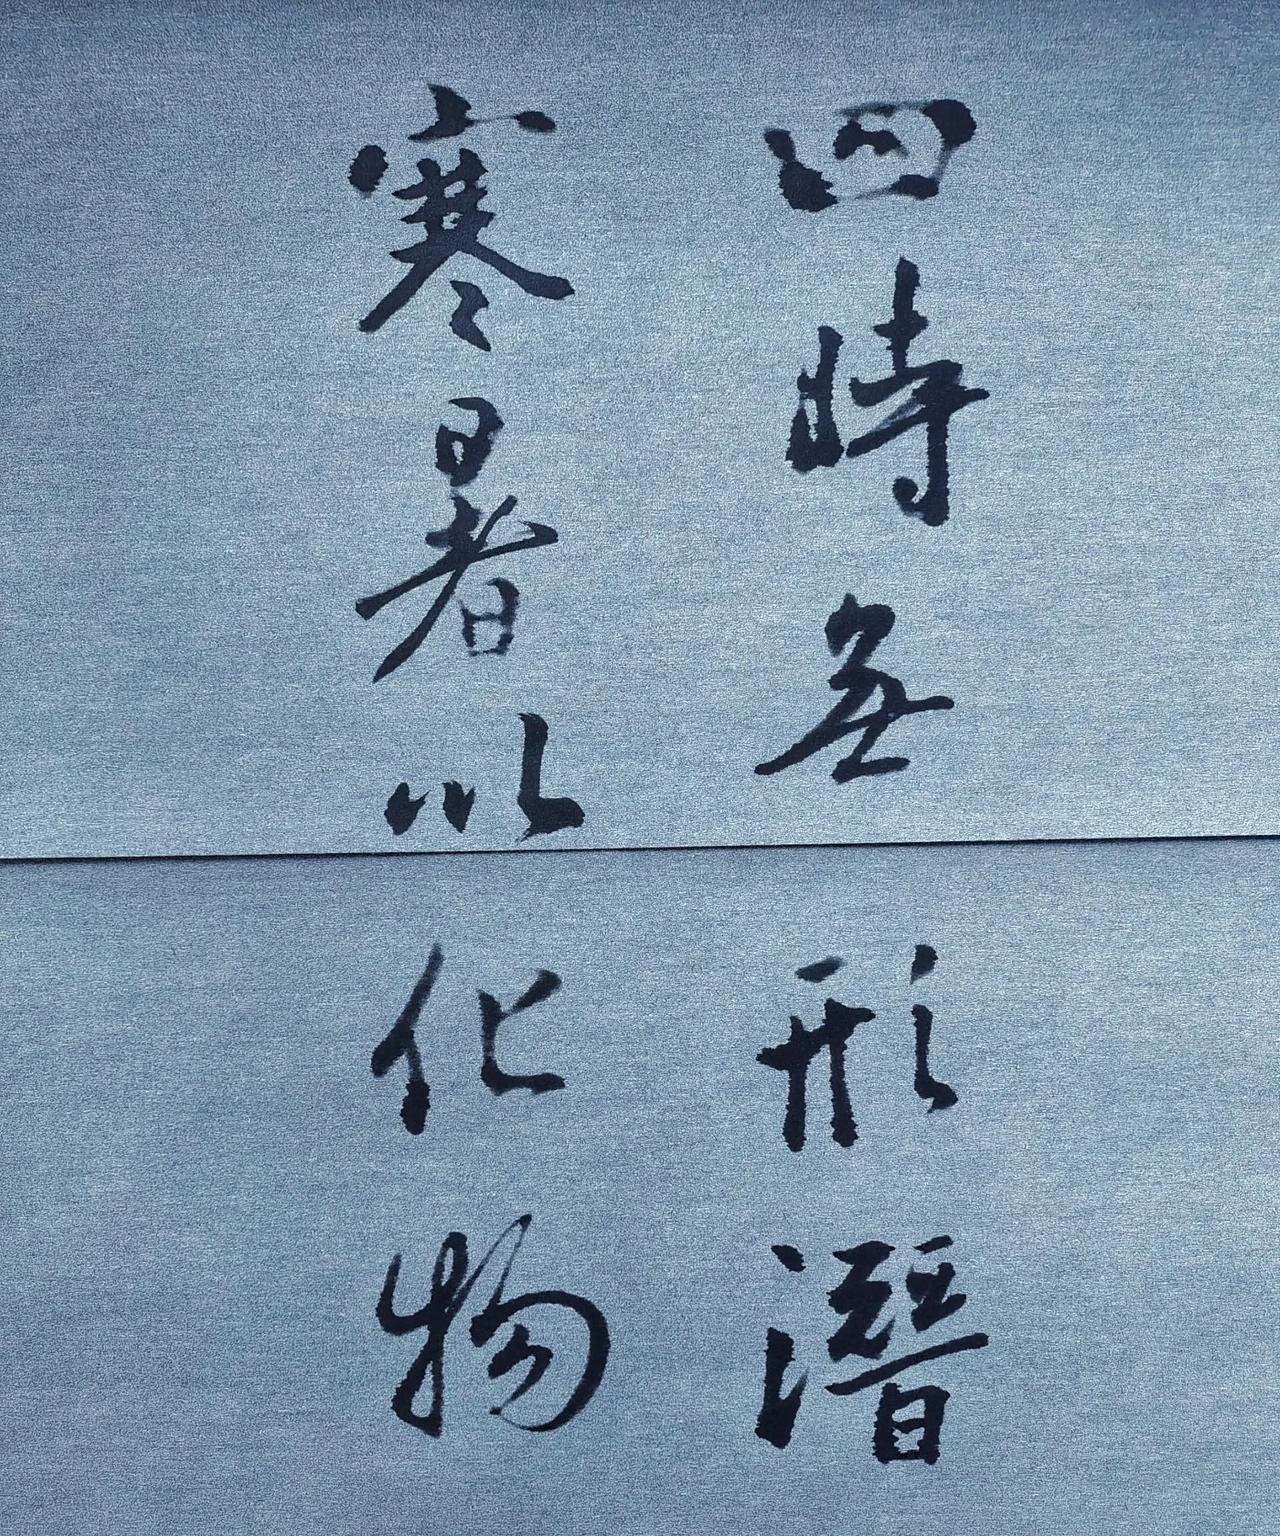 四時無形潛
寒暑以化物